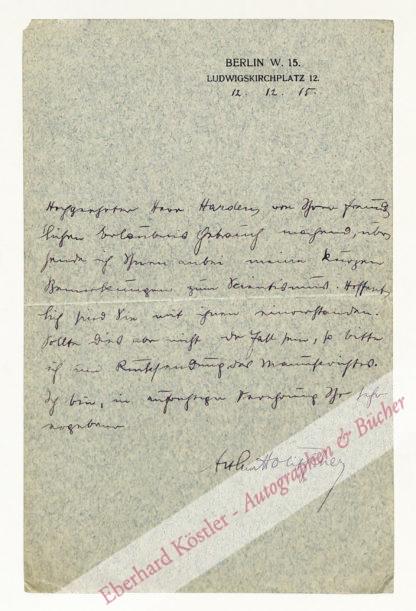 BERLIN W. 15.
LUDWIGSKIRCHPLATZ 12.
12. 12. 15.
Hochgeehrter Herr Harden, von Ihrer freund
lichen Erlaubnis Gebrauch machend, über
sende ich Ihnen anbei meine kurzen
Bemerkungen zum Scientismus. Hoffent
lich sind Sie mit ihnen einverstanden.
Sollte dies aber nicht der Fall sein, so bitte
ich um Rücksendung des Manuscriptes.
Ich bin, in aufrichtiger Verehrung Ihr sehr
ergebener
Arthur Holitscher
Eberhard Köstler - Autographen & Bücher